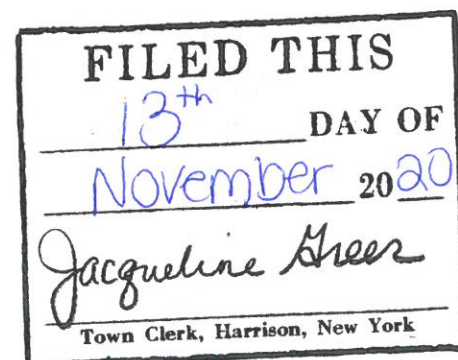 FILED THIS
13th DAY OF
November 2020
Jacqueline Greer
Town Clerk, Harrison, New York